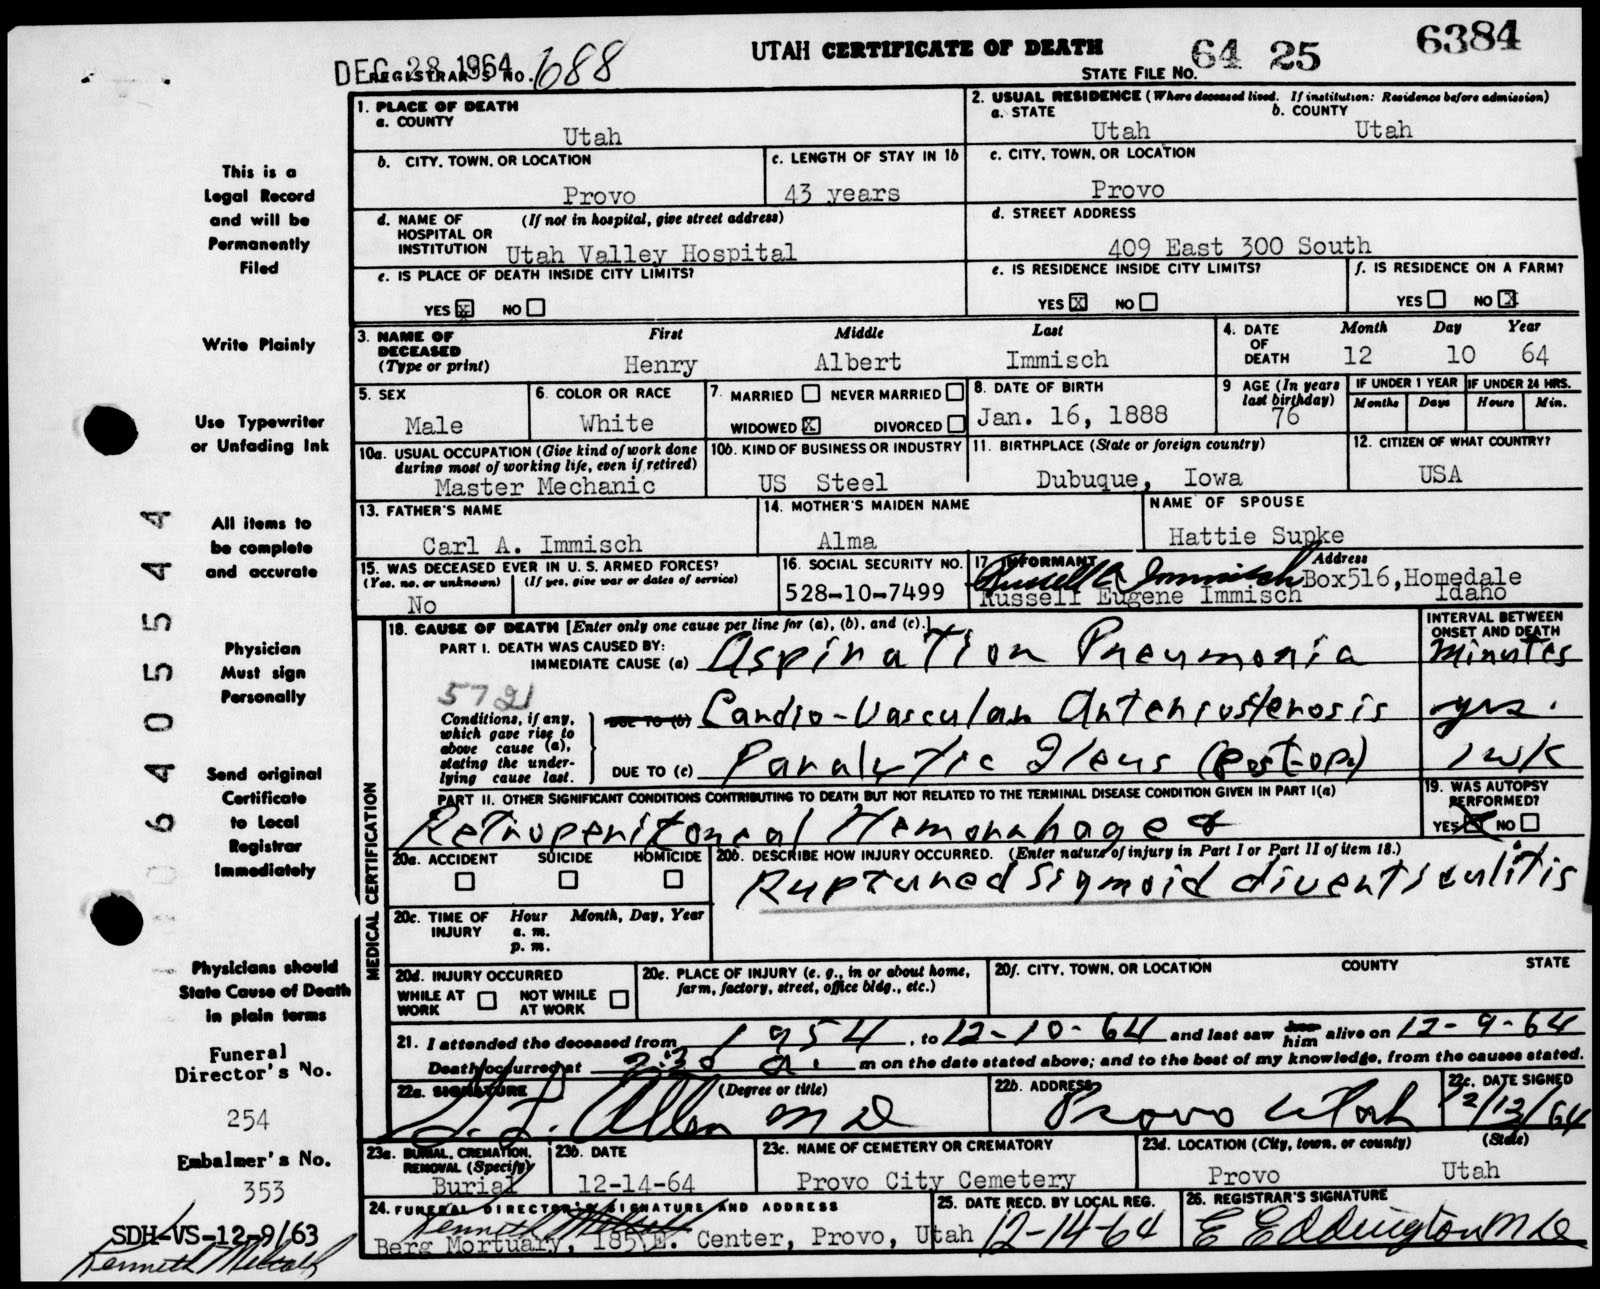 DEC 28 1964
REGISTRAR'S NO. 688
UTAH CERTIFICATE OF DEATH
STATE FILE NO. 64 25 6384
This is a
Legal Record
and will be
Permanently
Filed
Write Plainly
Use Typewriter
or Unfading Ink
All items to
be complete
and accurate
Physician
Must sign
Personally
Send original
Certificate
to Local
Registrar
Immediately
Physicians should
State Cause of Death
in plain terms
Funeral
Director's No.
254
Embalmer's No.
353
SDH-VS-12-9/63
Kenneth Metcalf
0640 5544
1. PLACE OF DEATH
a. COUNTY
Utah
2. USUAL RESIDENCE (Where deceased lived. If institution: Residence before admission)
a. STATE b. COUNTY
Utah Utah
b. CITY, TOWN, OR LOCATION
Provo
c. LENGTH OF STAY IN 1b
43 years
c. CITY, TOWN, OR LOCATION
Provo
d. NAME OF (If not in hospital, give street address)
HOSPITAL OR
INSTITUTION Utah Valley Hospital
d. STREET ADDRESS
409 East 300 South
e. IS PLACE OF DEATH INSIDE CITY LIMITS?
YES X NO
e. IS RESIDENCE INSIDE CITY LIMITS?
YES X NO
f. IS RESIDENCE ON A FARM?
YES NO X
3. NAME OF First Middle Last
DECEASED
(Type or print) Henry Albert Immisch
4. DATE Month Day Year
OF
DEATH 12 10 64
5. SEX
Male
6. COLOR OR RACE
White
7. MARRIED NEVER MARRIED
WIDOWED X DIVORCED
8. DATE OF BIRTH
Jan. 16, 1888
9 AGE (In years
last birthday)
76
IF UNDER 1 YEAR IF UNDER 24 HRS.
Months Days Hours Min.
10a. USUAL OCCUPATION (Give kind of work done
during most of working life, even if retired)
Master Mechanic
10b. KIND OF BUSINESS OR INDUSTRY
US Steel
11. BIRTHPLACE (State or foreign country)
Dubuque, Iowa
12. CITIZEN OF WHAT COUNTRY?
USA
13. FATHER'S NAME
Carl A. Immisch
14. MOTHER'S MAIDEN NAME
Alma
NAME OF SPOUSE
Hattie Supke
15. WAS DECEASED EVER IN U. S. ARMED FORCES?
(Yes, no, or unknown) (If yes, give war or dates of service)
No
16. SOCIAL SECURITY NO.
528-10-7499
17. INFORMANT Address
Russell E Immisch Box516, Homedale
Russell Eugene Immisch Idaho
MEDICAL CERTIFICATION
18. CAUSE OF DEATH [Enter only one cause per line for (a), (b), and (c).]
INTERVAL BETWEEN
ONSET AND DEATH
PART I. DEATH WAS CAUSED BY:
IMMEDIATE CAUSE (a) Aspiration Pneumonia minutes
5721
Conditions, if any,
which gave rise to
above cause (a),
stating the under-
lying cause last.
DUE TO (b) Cardio-Vascular Arteriosclerosis yrs.
DUE TO (c) Paralytic Ileus (post-op.) 1 wk
PART II. OTHER SIGNIFICANT CONDITIONS CONTRIBUTING TO DEATH BUT NOT RELATED TO THE TERMINAL DISEASE CONDITION GIVEN IN PART I(a)
Retroperitoneal Hemorrhage &
19. WAS AUTOPSY
PERFORMED?
YES X NO
20a. ACCIDENT SUICIDE HOMICIDE
20b. DESCRIBE HOW INJURY OCCURRED. (Enter nature of injury in Part I or Part II of item 18.)
Ruptured sigmoid diverticulitis
20c. TIME OF Hour Month, Day, Year
INJURY a. m.
p. m.
20d. INJURY OCCURRED
WHILE AT NOT WHILE
WORK AT WORK
20e. PLACE OF INJURY (e. g., in or about home,
farm, factory, street, office bldg., etc.)
20f. CITY, TOWN, OR LOCATION COUNTY STATE
21. I attended the deceased from 1954, to 12-10-64 and last saw her him alive on 12-9-64
Death occurred at 2:30 a. m on the date stated above; and to the best of my knowledge, from the causes stated.
22a. SIGNATURE (Degree or title)
Allen MD
22b. ADDRESS
Provo Utah
22c. DATE SIGNED
12/13/64
23a. BURIAL, CREMATION,
REMOVAL (Specify)
Burial
23b. DATE
12-14-64
23c. NAME OF CEMETERY OR CREMATORY
Provo City Cemetery
23d. LOCATION (City, town, or county) (State)
Provo Utah
24. FUNERAL DIRECTOR'S SIGNATURE AND ADDRESS
Kenneth Metcalf
Berg Mortuary, 185 E. Center, Provo, Utah
25. DATE RECD. BY LOCAL REG.
12-14-64
26. REGISTRAR'S SIGNATURE
E Eddington MD